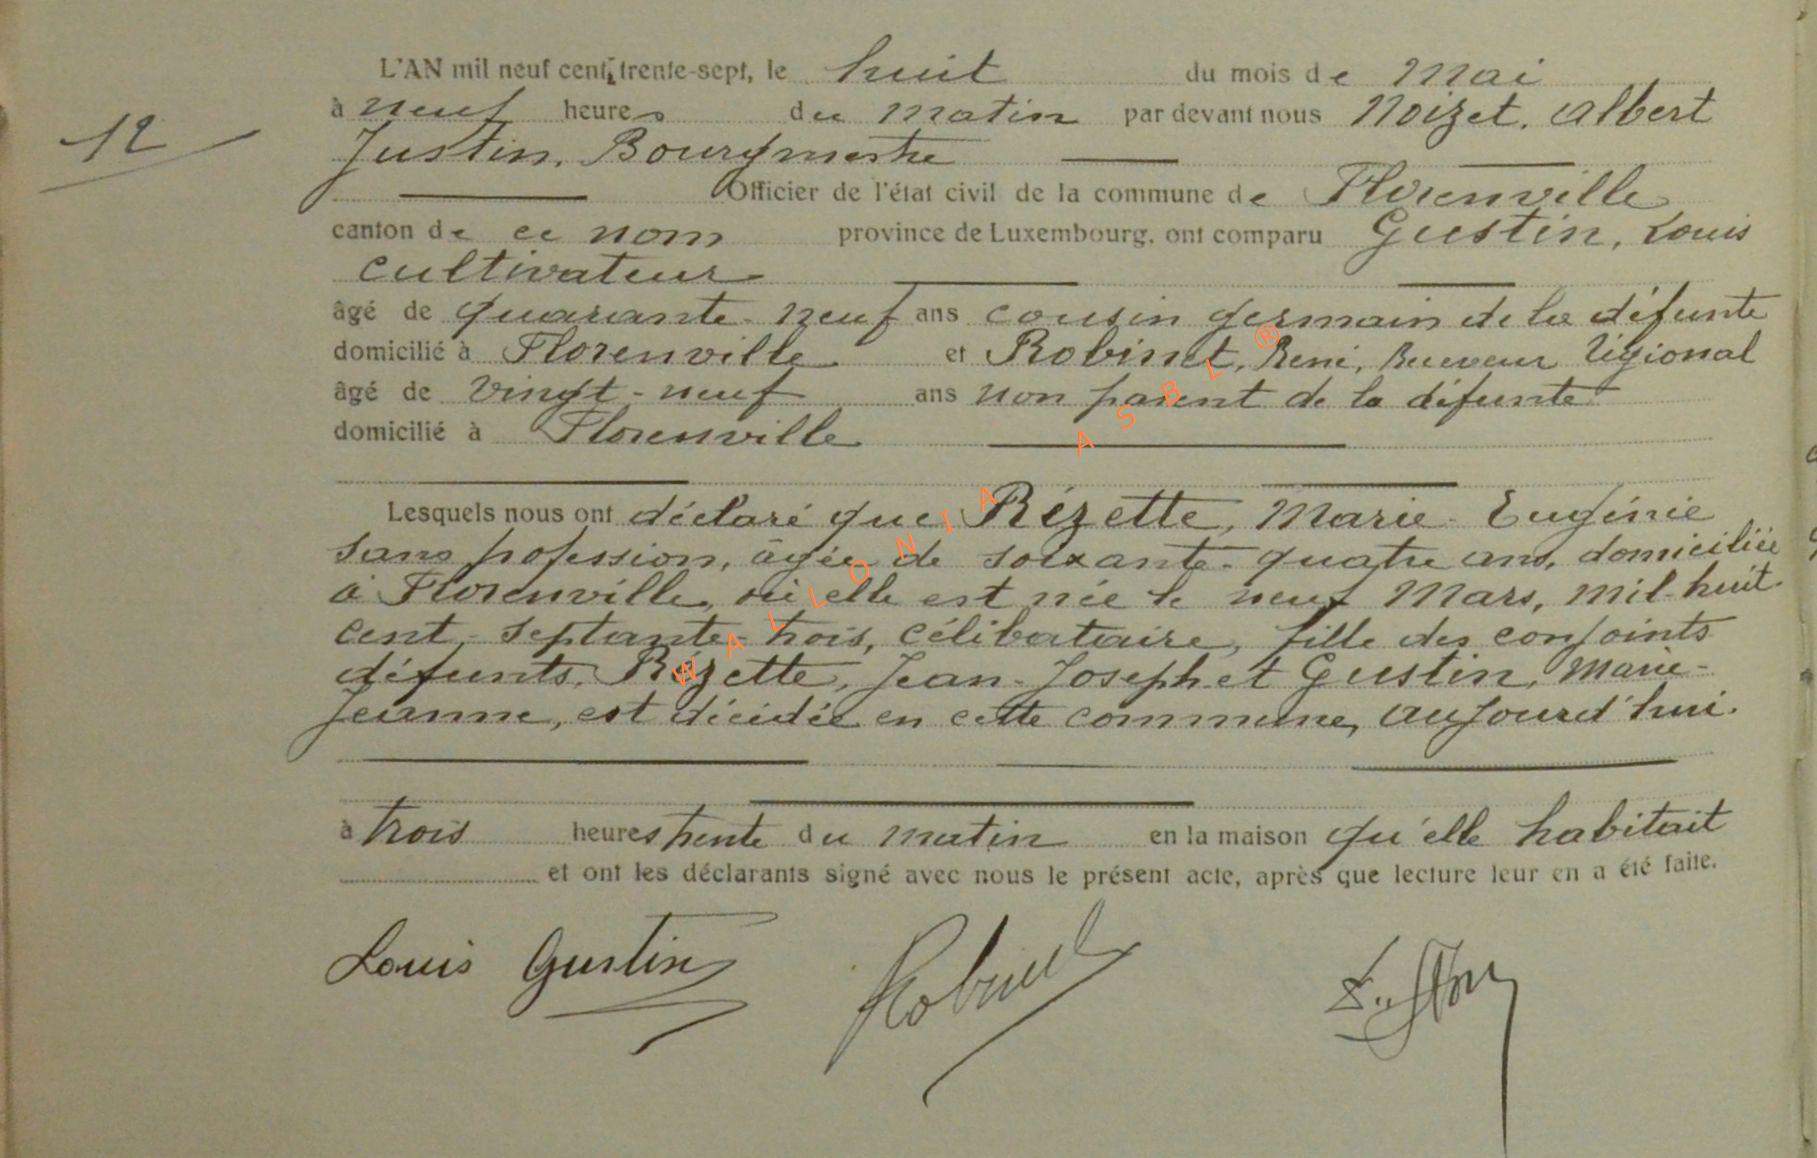 L'AN mil neuf cent trente-sept, le huit du mois de Mai
12
à neuf heures du matin par devant nous Noizet, Albert
Justin, Bourgmestre
Officier de l'état civil de la commune de Florenville
canton de ce nom province de Luxembourg, ont comparu Gustin, Louis
cultivateur
âgé de quarante-neuf ans cousin germain de la défunte
domicilié à Florenville et Robinet, René, Receveur régional
âgé de vingt-neuf ans non parent de la défunte
domicilié à Florenville
Lesquels nous ont déclaré que Rézette, Marie-Eugénie
sans profession, âgée de soixante-quatre ans, domiciliée
à Florenville, où elle est née le neuf Mars, mil-huit-
cent-septante-trois, célibataire, fille des conjoints
défunts, Rézette, Jean-Joseph et Gustin, Marie-
Jeanne, est décédée en cette commune, aujourd'hui.
à trois heures trente du matin en la maison qu'elle habitait
et ont les déclarants signé avec nous le présent acte, après que lecture leur en a été faite.
Louis Gustin Robinet
WALLONIA ASBL ®